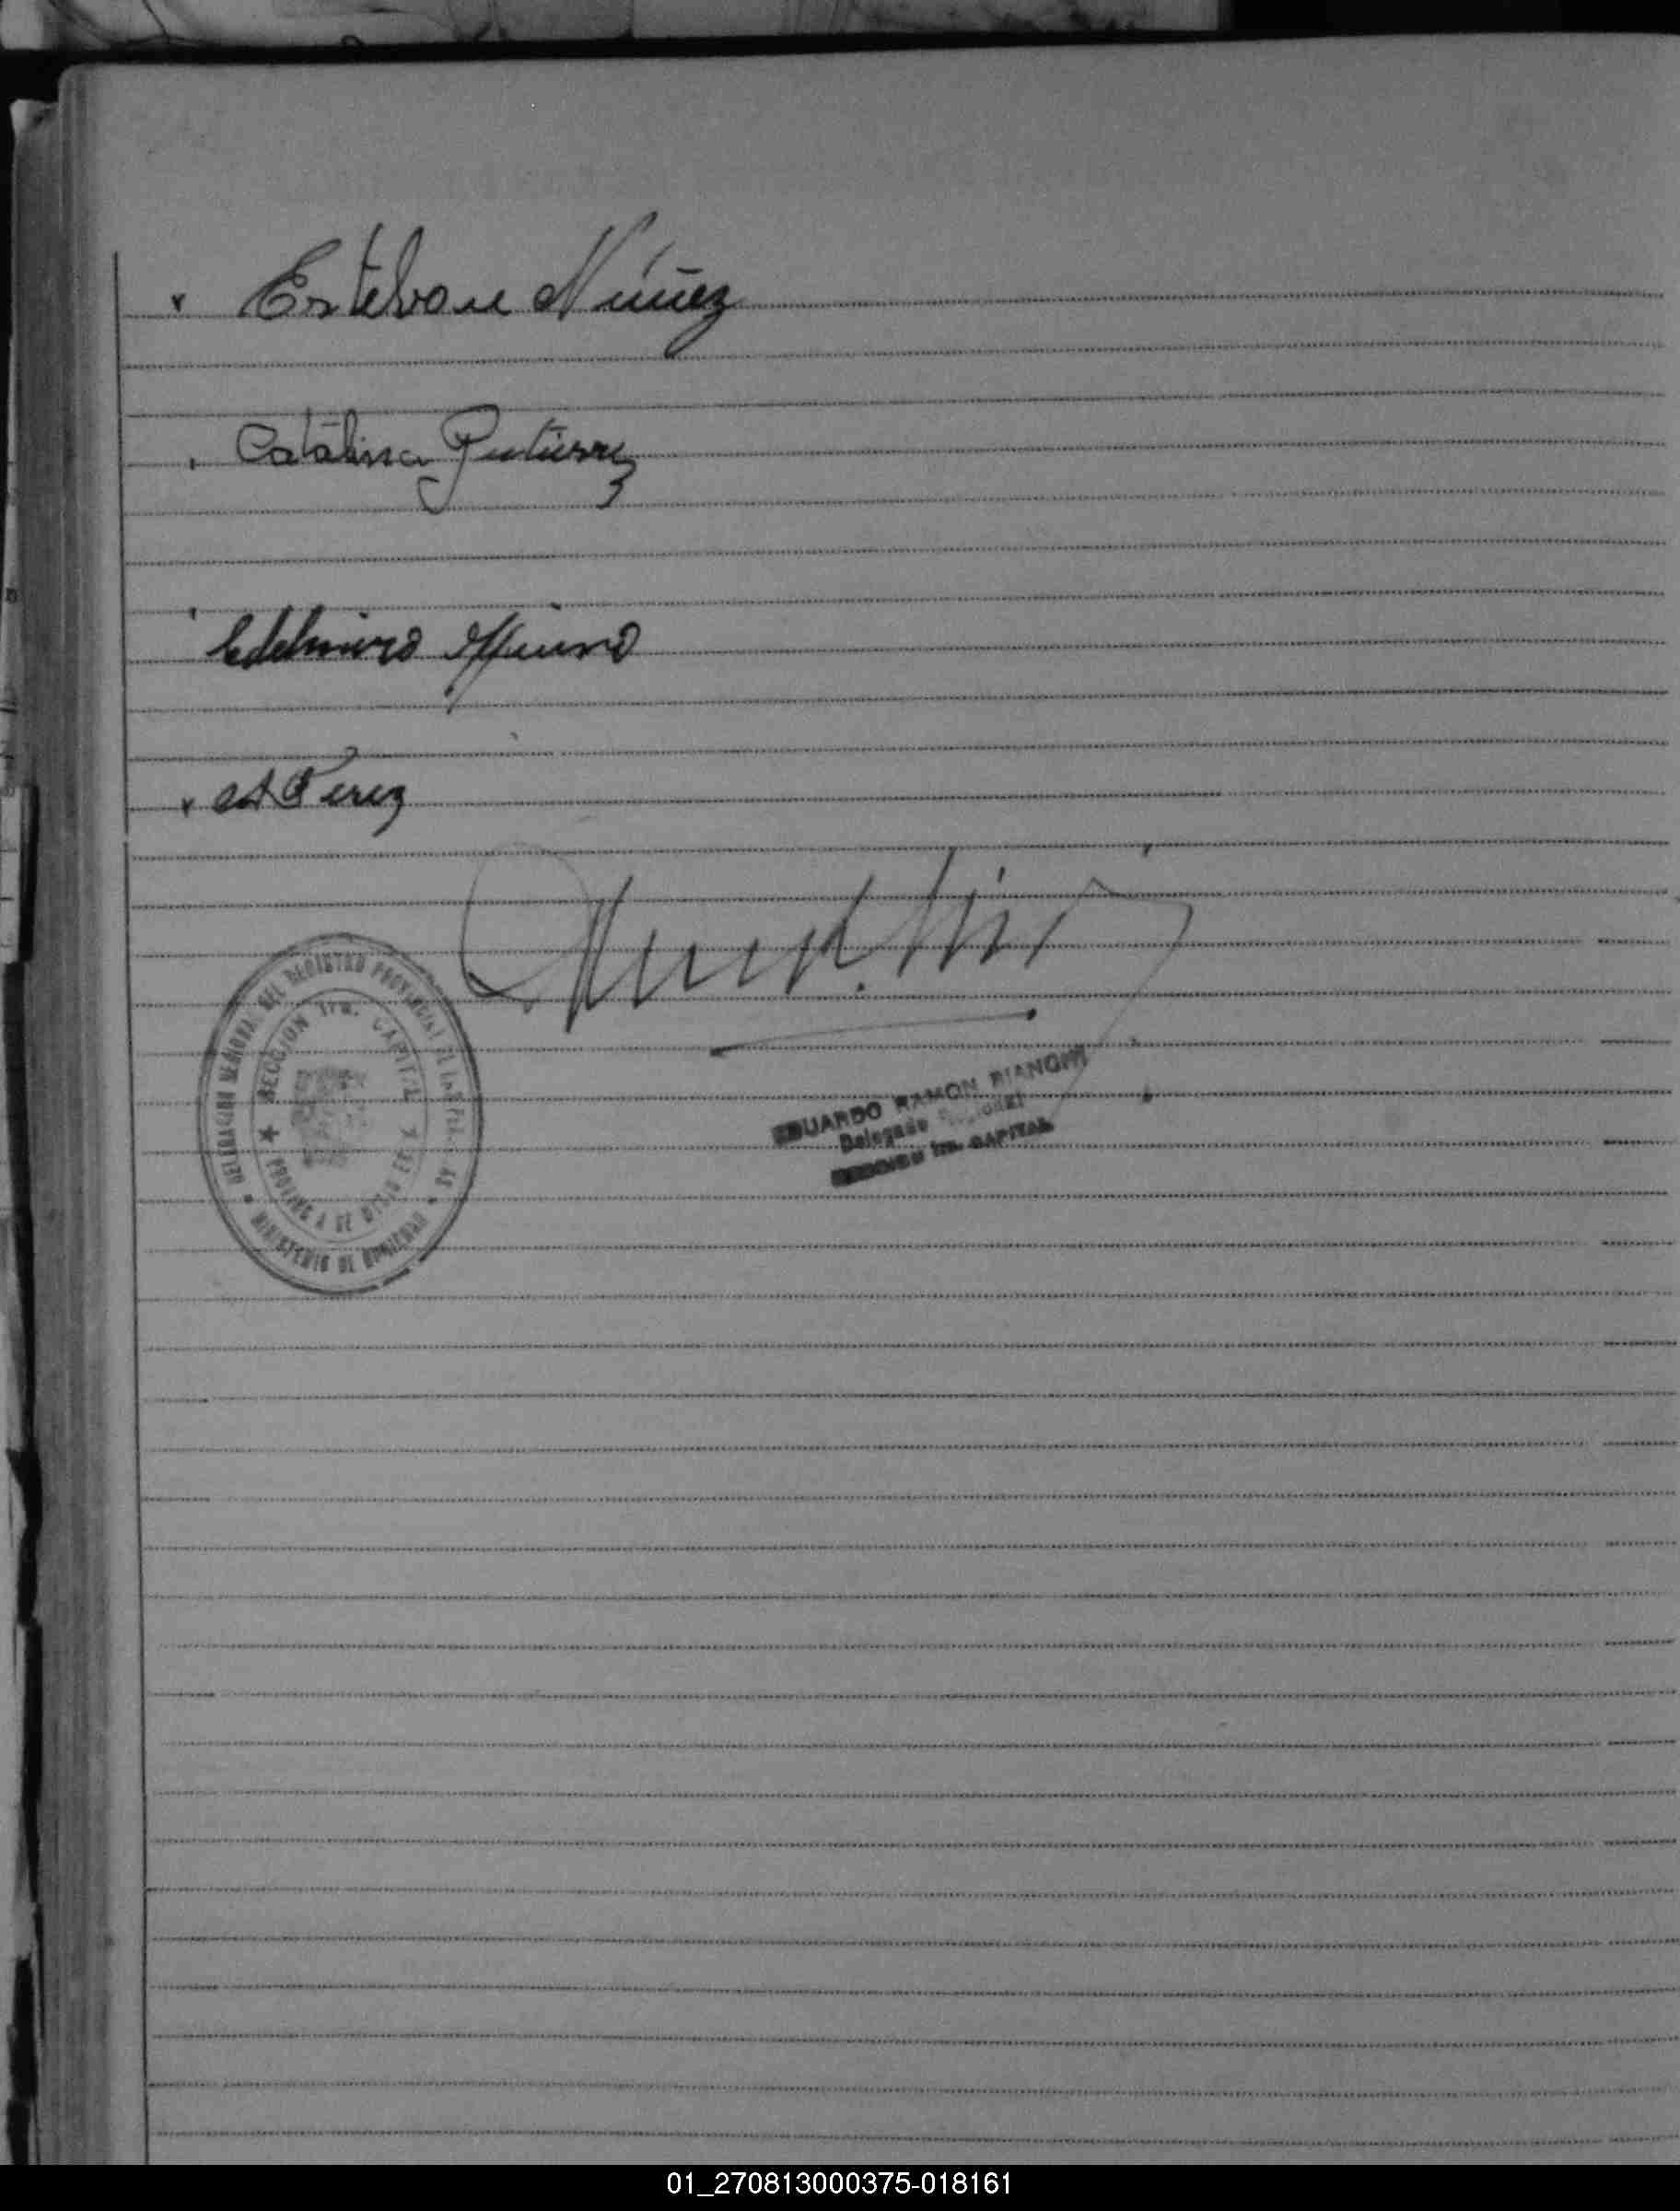 Esteban Núñez
Catalina Gutierrez
Edelmiro
A Perez
DELEGACION SECCIONAL DEL REGISTRO PROVINCIAL DE LAS PERSONAS
SECCION 1ra. CAPITAL
PROVINCIA DE
MINISTERIO DE GOBIERNO
EDUARDO RAMON BIANCHI
Delegado Seccional
SECCION 1ra. CAPITAL
01_270813000375-018161